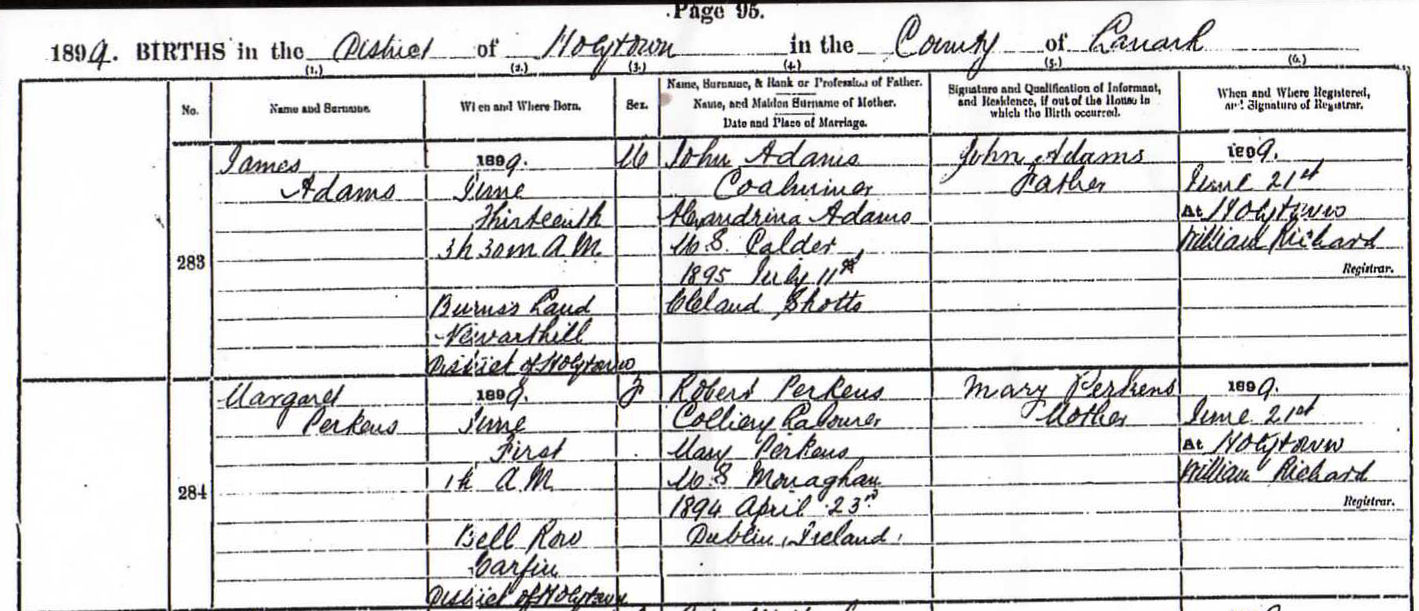 Page 95.
1899. BIRTHS in the District of Holytown in the County of Lanark
(1.) (2.) (3.) (4.) (5.) (6.)
No.
Name and Surname.
When and Where Born.
Sex.
Name, Surname, & Rank or Profession of Father.
Name, and Maiden Surname of Mother.
Date and Place of Marriage.
Signature and Qualification of Informant,
and Residence, if out of the House in
which the Birth occurred.
When and Where Registered,
and Signature of Registrar.
283
James
Adams
1899.
June
Thirteenth
3h 30m A.M.
Burns's Land
Newarthill
District of Holytown
M
John Adams
Coalminer
Alexandrina Adams
M.S. Calder
1895 July 11th
Cleland Shotts
John Adams
Father
1899.
June 21st
At Holytown
William Richard
Registrar.
284
Margaret
Perkens
1899.
June
First
1h A.M.
Bell Row
Carfin
District of Holytown
F
Robert Perkens
Colliery Labourer
Mary Perkens
M.S. Monaghan
1894 April 23rd
Dublin, Ireland.
Mary Perkens
Mother
1899.
June 21st
At Holytown
William Richard
Registrar.